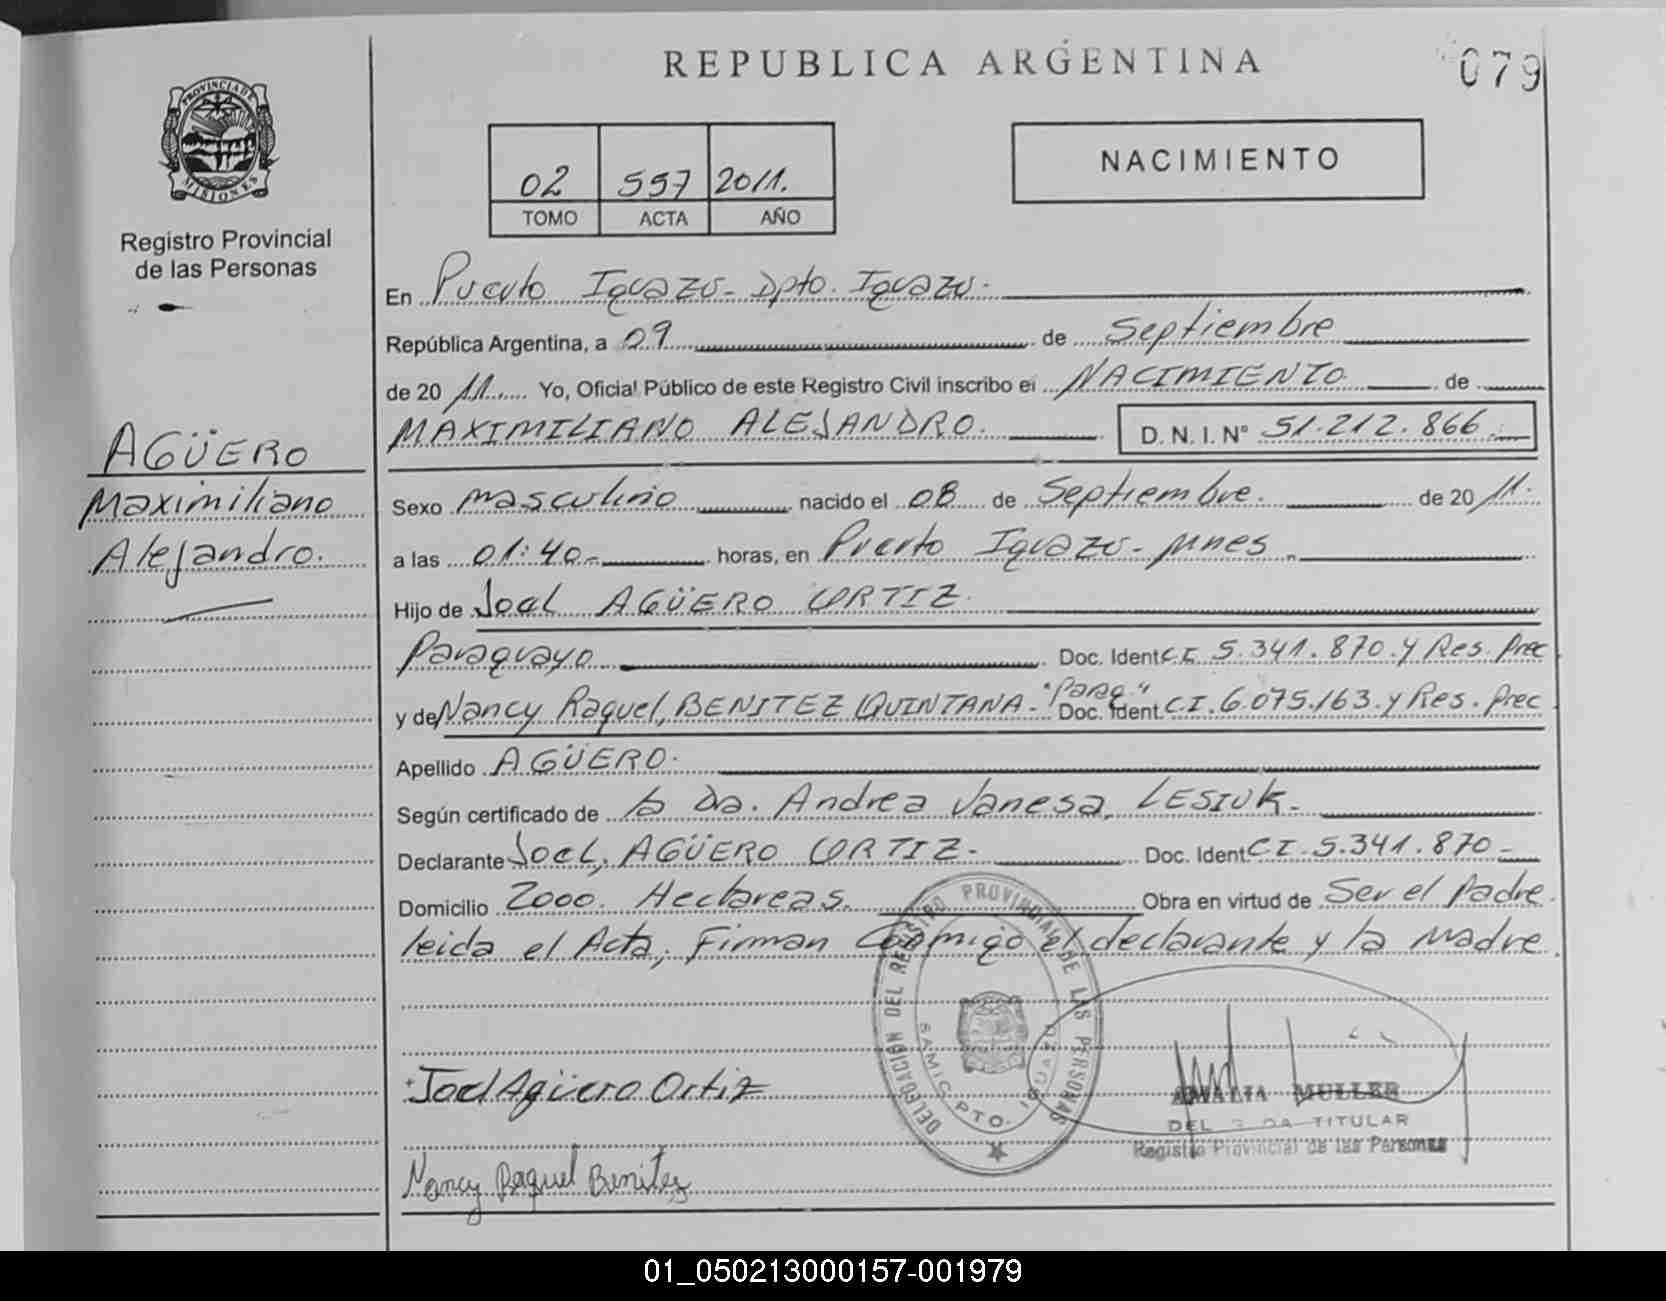 REPUBLICA ARGENTINA
079
PROVINCIA DE
MISIONES
Registro Provincial
de las Personas
02 557 2011.
TOMO ACTA AÑO
NACIMIENTO
En Puerto Iguazú - Dpto. Iguazú -
República Argentina, a 09 de Septiembre
de 20 11 Yo, Oficial Público de este Registro Civil inscribo el NACIMIENTO de
MAXIMILIANO ALEJANDRO. D. N. I. N° 51.212.866
AGÜERO
Maximiliano
Alejandro.
Sexo masculino nacido el 08 de Septiembre. de 20 11.
a las 01:40 horas, en Puerto Iguazú - Mnes
Hijo de Joel AGÜERO ORTIZ
Paraguayo Doc. Ident C I 5.341.870. y Res. Prec
y de Nancy Raquel, BENITEZ QUINTANA - "Parag" Doc. Ident. C.I. 6.075.163. y Res. Prec
Apellido AGÜERO.
Según certificado de la Da. Andrea Vanesa, LESIUK -
Declarante Joel, AGÜERO ORTIZ - Doc. Ident C I 5.341.870 -
Domicilio 2000. Hectareas. Obra en virtud de Ser el Padre
leida el Acta, Firman Conmigo el declarante y la Madre
Joel Agüero Ortiz
Nancy Raquel Benitez
DELEGACIÓN DEL REGISTRO PROVINCIAL DE LAS PERSONAS
DPTO. IGUAZU
AMALIA MULLER
TITULAR
Registro Provincial de las Personas
01_050213000157-001979